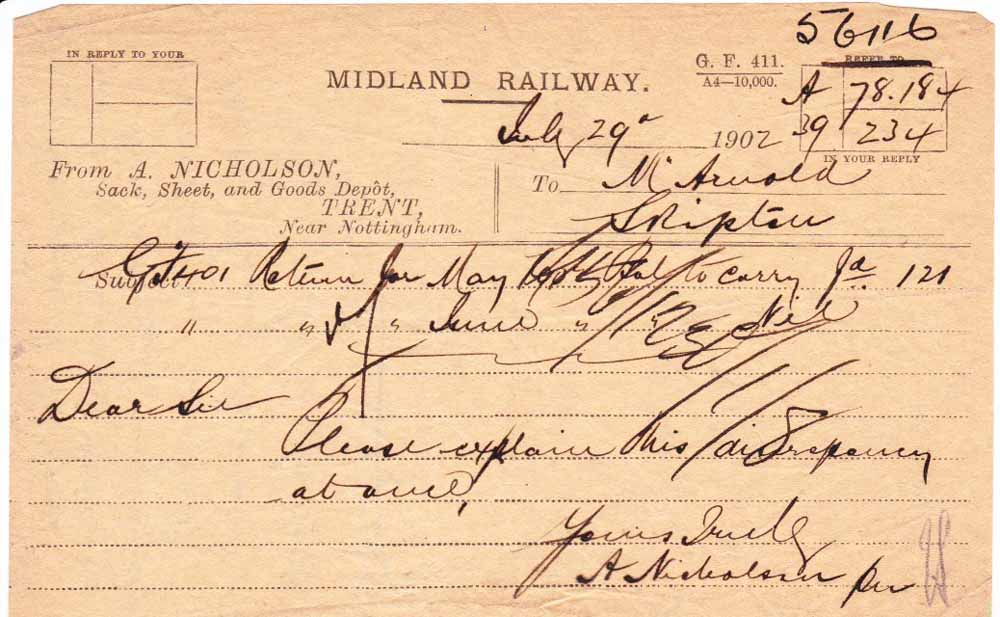 56116
IN REPLY TO YOUR
MIDLAND RAILWAY.
G. F. 411.
A4—10,000.
REFER TO
A 78.184
39 234
IN YOUR REPLY
July 29th 1902
From A. NICHOLSON,
Sack, Sheet, and Goods Depôt,
TRENT,
Near Nottingham.
To Mr Arnold
Skipton
Subject GF 401 Return for May Bal to carry fd. 121
" " " June " Nil
Dear Sir
Please explain this discrepancy
at once,
Yours Truly
A Nicholson
per